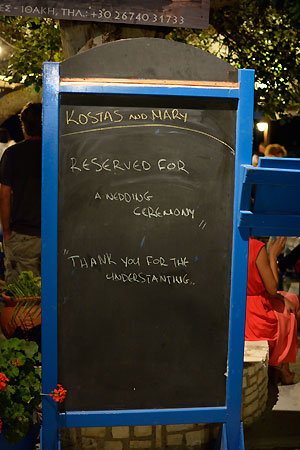 Σ - ΙΘΑΚΗ, ΤΗΛ.: +30 26740 31733
KOSTAS AND MARY
RESERVED FOR
A WEDDING
CEREMONY "
"THANK YOU FOR THE
UNDERSTANTING..